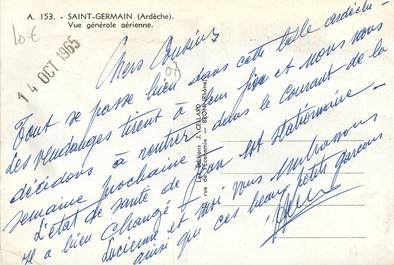 A. 153. - SAINT-GERMAIN (Ardèche).
Vue générale aérienne.
10€
14 OCT 1965
Chers Cousins
Tout se passe bien dans cette belle ardèche -
les vendanges tirent à leur fin et nous nous
décidons à rentrer dans le courant de la
semaine prochaine -
L'état de santé de Jean est stationnaire -
Il a bien changé -
Lucienne et moi vous embrassons
ainsi que ces beaux petits garçons
Les Editions J. CELLARD
rue de l'Economie - BRON (Rhône)